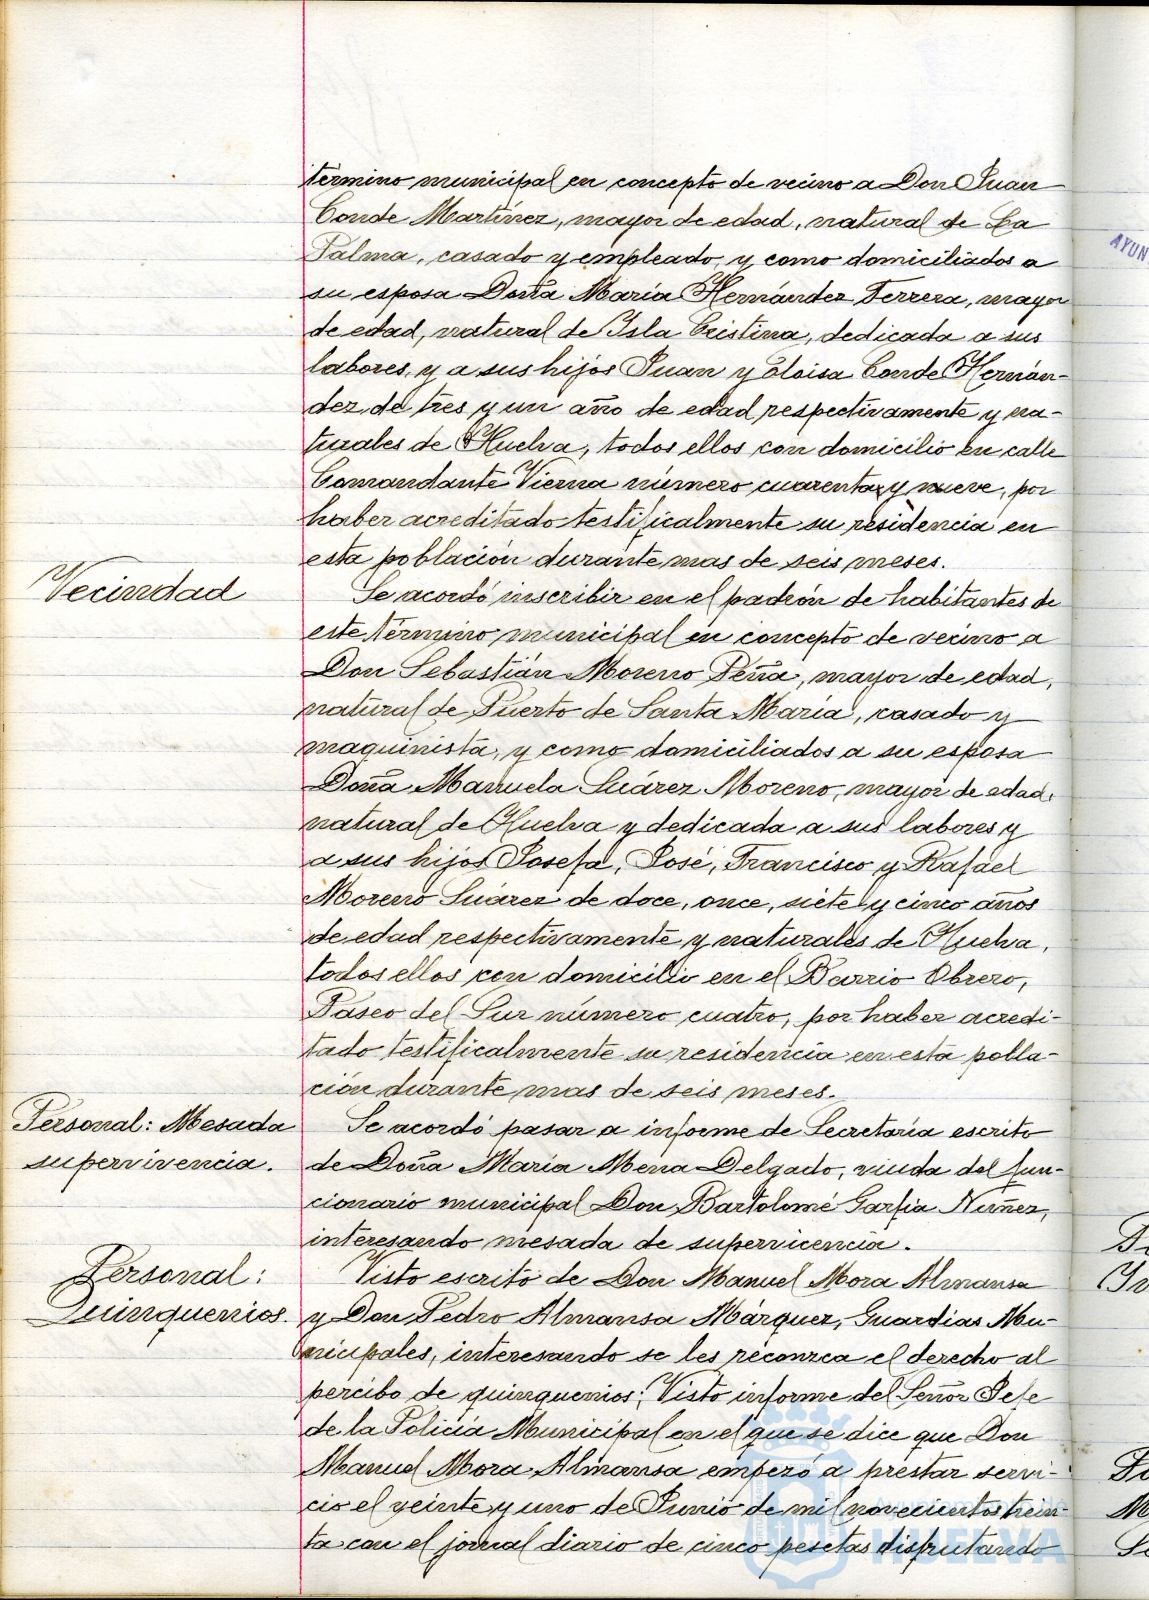 término municipal en concepto de vecino a Don Juan
Conde Martínez, mayor de edad, natural de La
Palma, casado y empleado, y como domiciliados a
su esposa Doña María Hernández Ferrera, mayor
de edad, natural de Isla Cristina, dedicada a sus
labores, y a sus hijos Juan y Eloisa Conde Hernán-
dez de tres y un año de edad respectivamente y na-
turales de Huelva, todos ellos con domicilio en calle
Comandante Vierna número cuarenta y nueve, por
haber acreditado testificalmente su residencia en
esta población durante mas de seis meses.
Vecindad
Se acordó inscribir en el padrón de habitantes de
este término municipal en concepto de vecino a
Don Sebastián Moreno Peña, mayor de edad,
natural de Puerto de Santa María, casado y
maquinista, y como domiciliados a su esposa
Doña Manuela Suárez Moreno, mayor de edad,
natural de Huelva y dedicada a sus labores y
a sus hijos Josefa, José, Francisco y Rafael
Moreno Suárez de doce, once, siete y cinco años
de edad respectivamente y naturales de Huelva,
todos ellos con domicilio en el Barrio Obrero,
Paseo del Sur número cuatro, por haber acredi-
tado testificalmente su residencia en esta pobla-
ción durante mas de seis meses.
Personal: Mesada
supervivencia.
Se acordó pasar a informe de Secretaría escrito
de Doña María Mena Delgado, viuda del fun-
cionario municipal Don Bartolomé Garfia Nuñez,
interesando mesada de supervicencia.
Personal:
Quinquenios.
Visto escrito de Don Manuel Mora Almansa
y Don Pedro Almansa Márquez, Guardias Mu-
nicipales, interesando se les reconzca el derecho al
percibo de quinquenios; Visto informe del Señor Jefe
de la Policía Municipal en el que se dice que Don
Manuel Mora Almansa empezó a prestar servi-
cio el veinte y uno de Junio de mil novecientos trein-
ta con el jornal diario de cinco pesetas disfrutando
AYUN
Ayuntamiento de
HUELVA